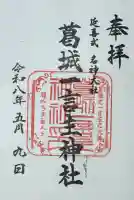 奉拝
延喜式 名神大社
葛城一言主神社
令和八年五月九日